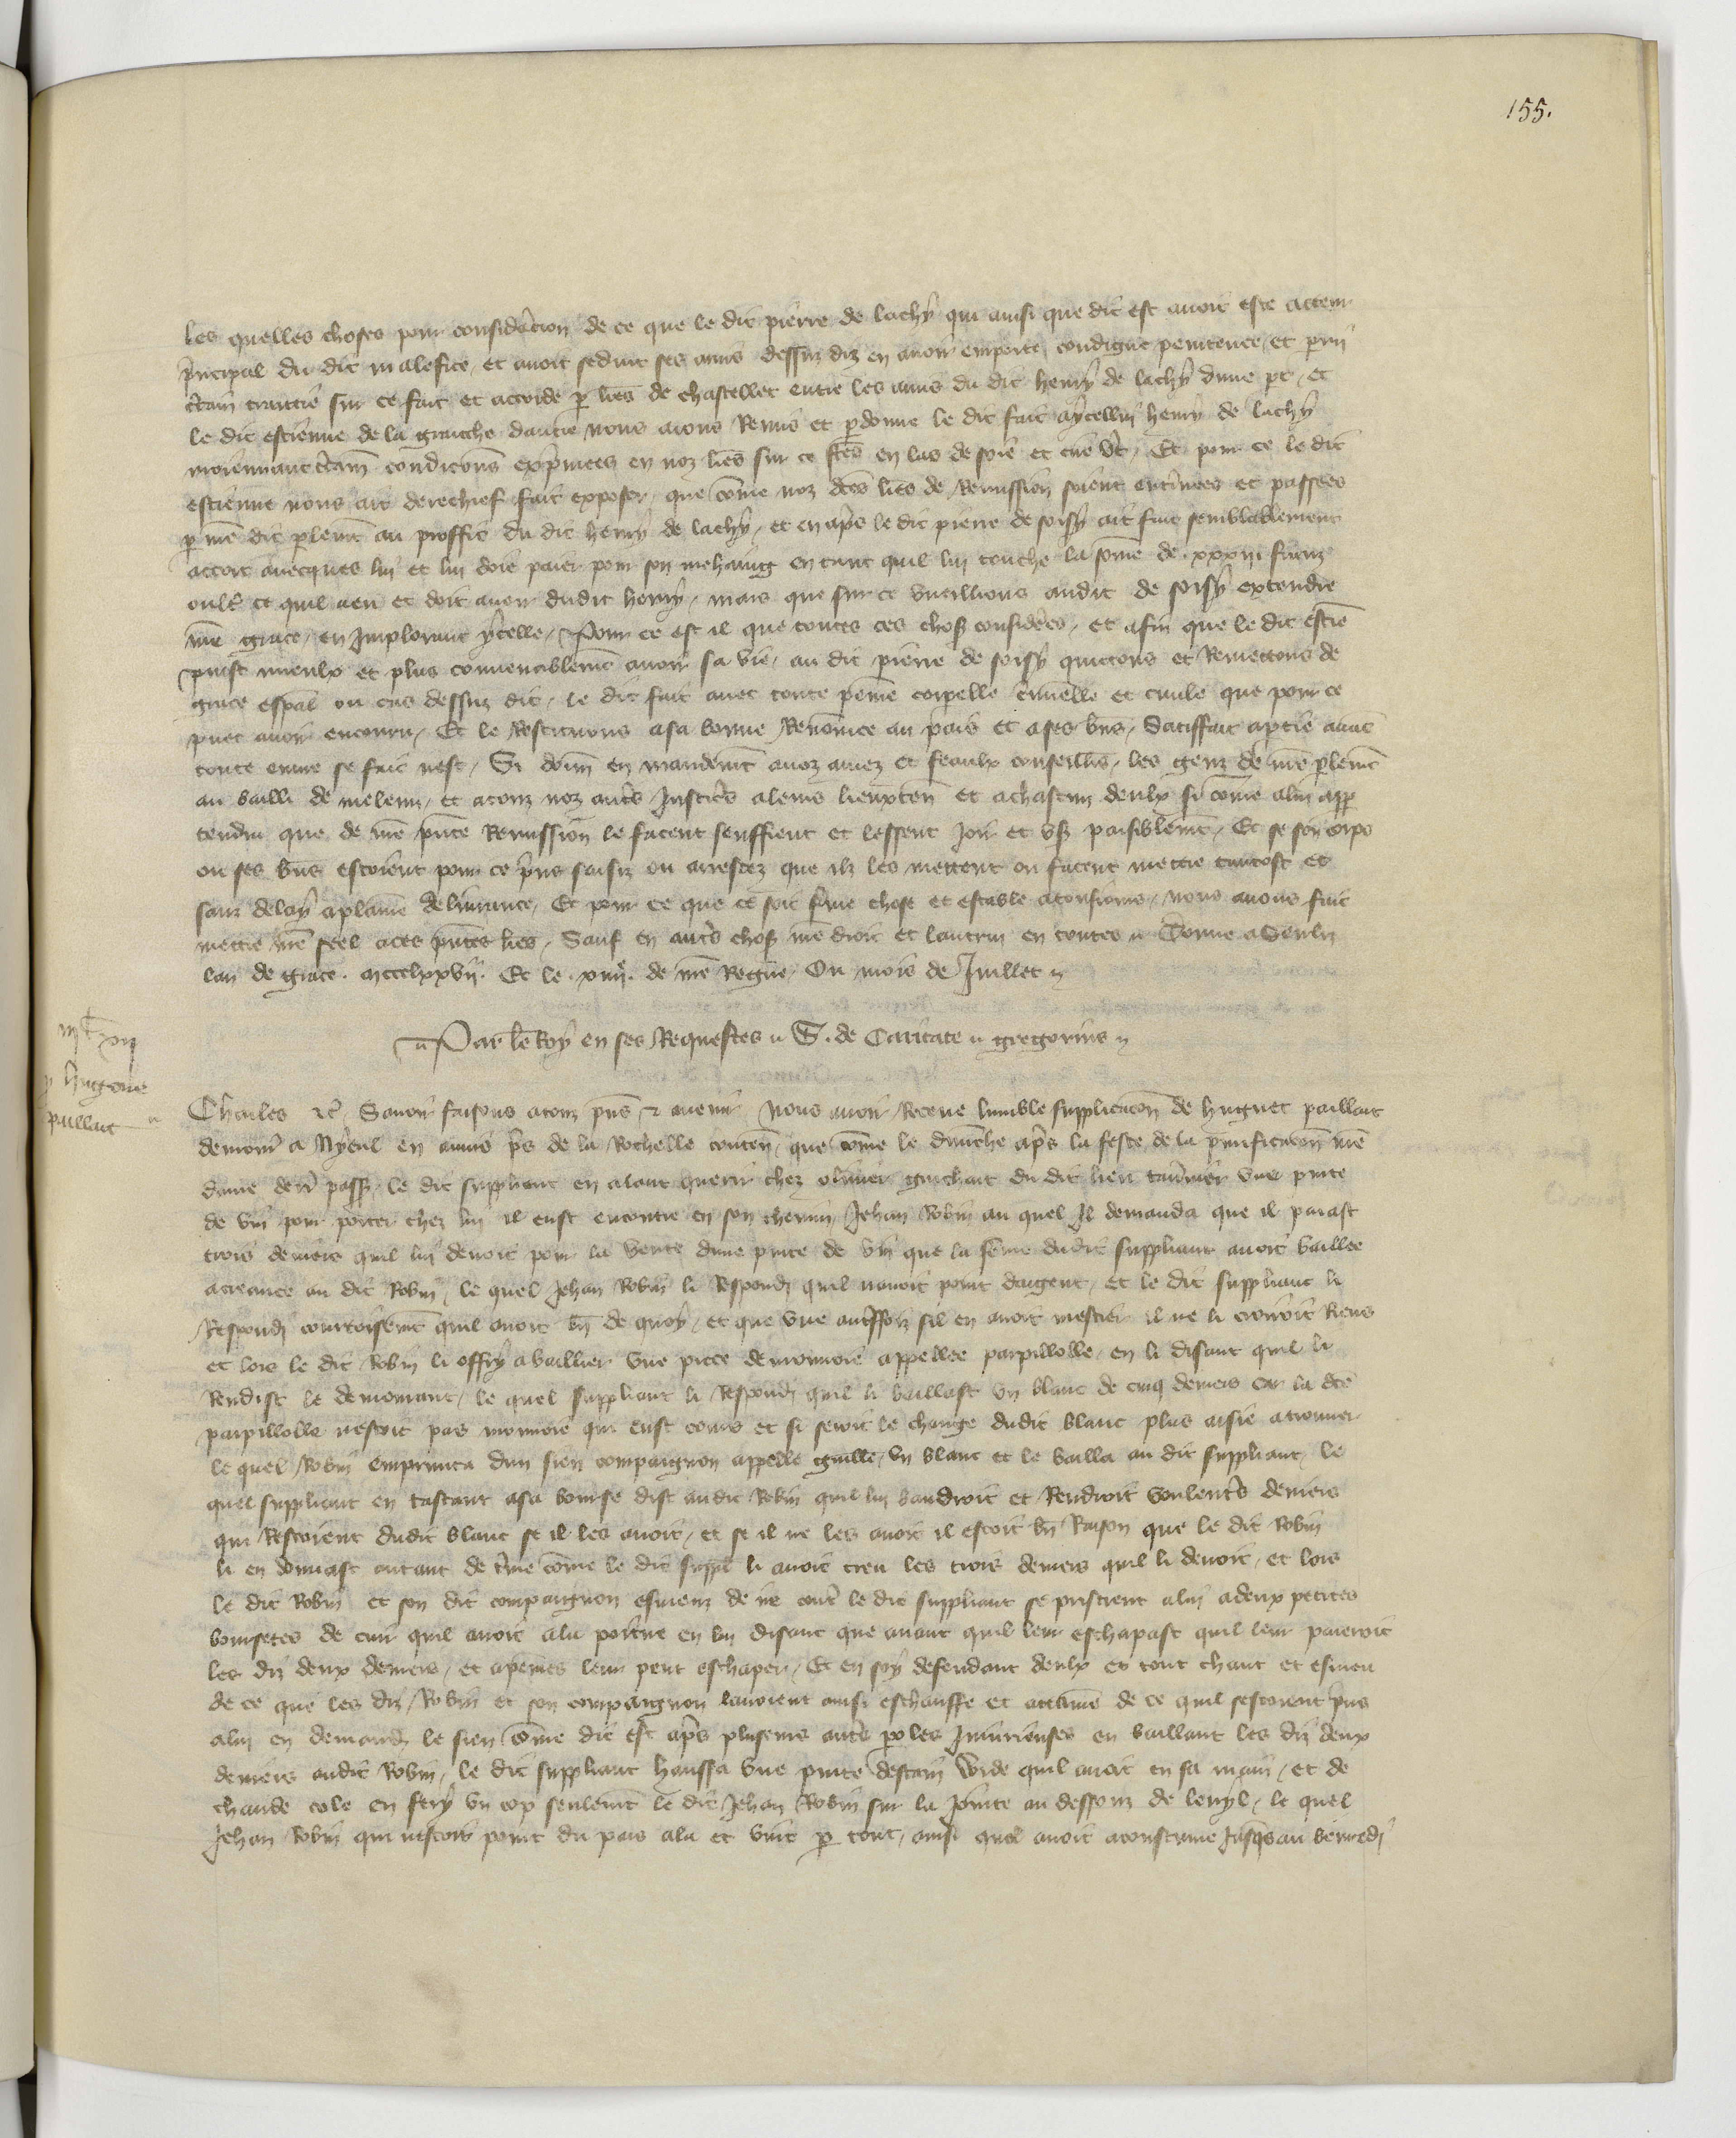 155.
les quelles choses pour consideracion de ce que le dit pierre de lachy qui ainsi que dit est avoit este acteur
principal du dit malefice et avoit seduit ses amis dessuz diz en avoir emporte condigne penitence et parmi
certain traittie sur ce fait et accorde par lres de chastellet entre les amis du dit henry de lachy dune part et
le dit estienne de la granche dautre nous avons Remis et pardonne le dit fait a ycellui henry de lachy
moiennant certainnes condicions exprimees en noz lres sur ce ftes en las de soie et cire vert Et pour ce le dit
estienne nous ait derechief fait exposer que come noz dces lres de Remission soient enterinees et passees
par nre dit parlement au proffit du dit henry de lachy et en apres le dit pierre de soisy ait fait semblablement
accort avecques lui et lui doie paier pour son mehaing en tant quil lui touche la some de xxxiii frans
oultre ce quil a eu et doit avoir dudit henry mais que sur ce vueillions audit de soisy extendre
nre grace en Implorant ycelle Pour ce est il que toutes ces choses considerees et afin que le dit estiene
puist mieulx et plus convenablement avoir sa vie au dit pierre de soisy quictons et Remettons de
grace espal ou cas dessuz dit le dit fait avec toute peine corpelle criminelle et civile que pour ce
puet avoir encouru Et le Restituons a sa bonne Renomee au pais et a ses biens Satisfait a partie avant
toute euvre se fait nest Si donn en mandement a noz amez et feaulx conseillers les genz de nre parlement
au bailli de meleun et a touz noz autres Justiciers a leurs lieuxten et a chascun deulx si come a lui app
tendra que de nre pnte Remission le facent seuffrent et lessent Joir et user paisiblement Et se son corps
ou ses biens estoient pour ce prins saisiz ou arrestez que ilz les mettent ou facent mettre tantost et
sanz delay a plaine delivrance Et pour ce que ce soit ferme chose et estable a tousiours nous avons fait
mettre nre seel a ces pntes lres Sauf en autres choses nre droit et lautrui en toutes Donne a Senliz
lan de grace mccclxxvii Et le xiiii de nre Regne Ou mois de Juillet
Par le Roy en ses Requestes S. de Caritate gregorius
Hugone
paillart
Charles etc Savoir faisons a touz pns et avenir Nous avoir Receue lumble supplicacion de huguet paillart
demour a Nyeul en aunis pres de la Rochelle conten que come le dimenche apres la feste de la purificacion nre
dame derr passee le dit suppliant en alant querir chez olivier guichart du dit lieu tavernier une pinte
de vin pour porter chez lui il eust encontre en son chemin Jehan Robin au quel Il demanda que il paiast
trois deniers quil lui devoit pour la vente dune pinte de vin que la feme dudit suppliant avoit baillee
a creance au dit Robin le quel Jehan Robin li Respondi quil navoit point dargent et le dit suppliant li
Respondi courtoisement quil avoit bien de quoy et que une autreffoiz sil en avoit mestier il ne li croirroit Riens
et lors le dit Robin li offry a baillier une piece de monnoie appellee parpillolle en li disant quil li
Rendist le demourant le quel suppliant li Respondi quil li baillast un blanc de cinq deniers car la dce
parpillolle nestoit pas monnoie qui eust cours et si seroit le change dudit blanc plus aisie a trouver
le quel Robin emprunta dun sien compaignon appelle guille un blanc et le bailla au dit suppliant le
quel suppliant en tastant a sa bourse dist audit Robin quil lui baudroit et Rendroit voulentiers deniers
qui Restoient dudit blanc se il les avoit et se il ne les avoit il estoit bien Raison que le dit Robin
li en donnast autant de terme come le dit suppl li avoit creu les trois deniers quil li devoit et lors
le dit Robin et son dit compaignon esmeuz de ire contre le dit suppliant se pristrent a lui a deux petites
boursetes de cuir quil avoit a la poitrine en lui disant que avant quil leur eschapast quil leur paieroit
les diz deux deniers et a peines leur peut eschaper Et en soy defendant deulx et tout chaut et esmeu
de ce que les diz Robin et son compaignon lavoient ainsi eschauffe et attaine de ce quil sestoient prins
a lui en demandant le sien come dit est apres pluseurs autres paroles Iniurieuses en baillant les diz deux
deniers audit Robin le dit suppliant haussa une pinte destain wide quil avoit en sa main et de
chaude cole en fery un cop seulement le dit Jehan Robin sur la Jointe au dessouz de leuyl le quel
Jehan Robin qui nestoit point du pais ala et vint par tout ainsi quil avoit acoustume Jusques au venredi